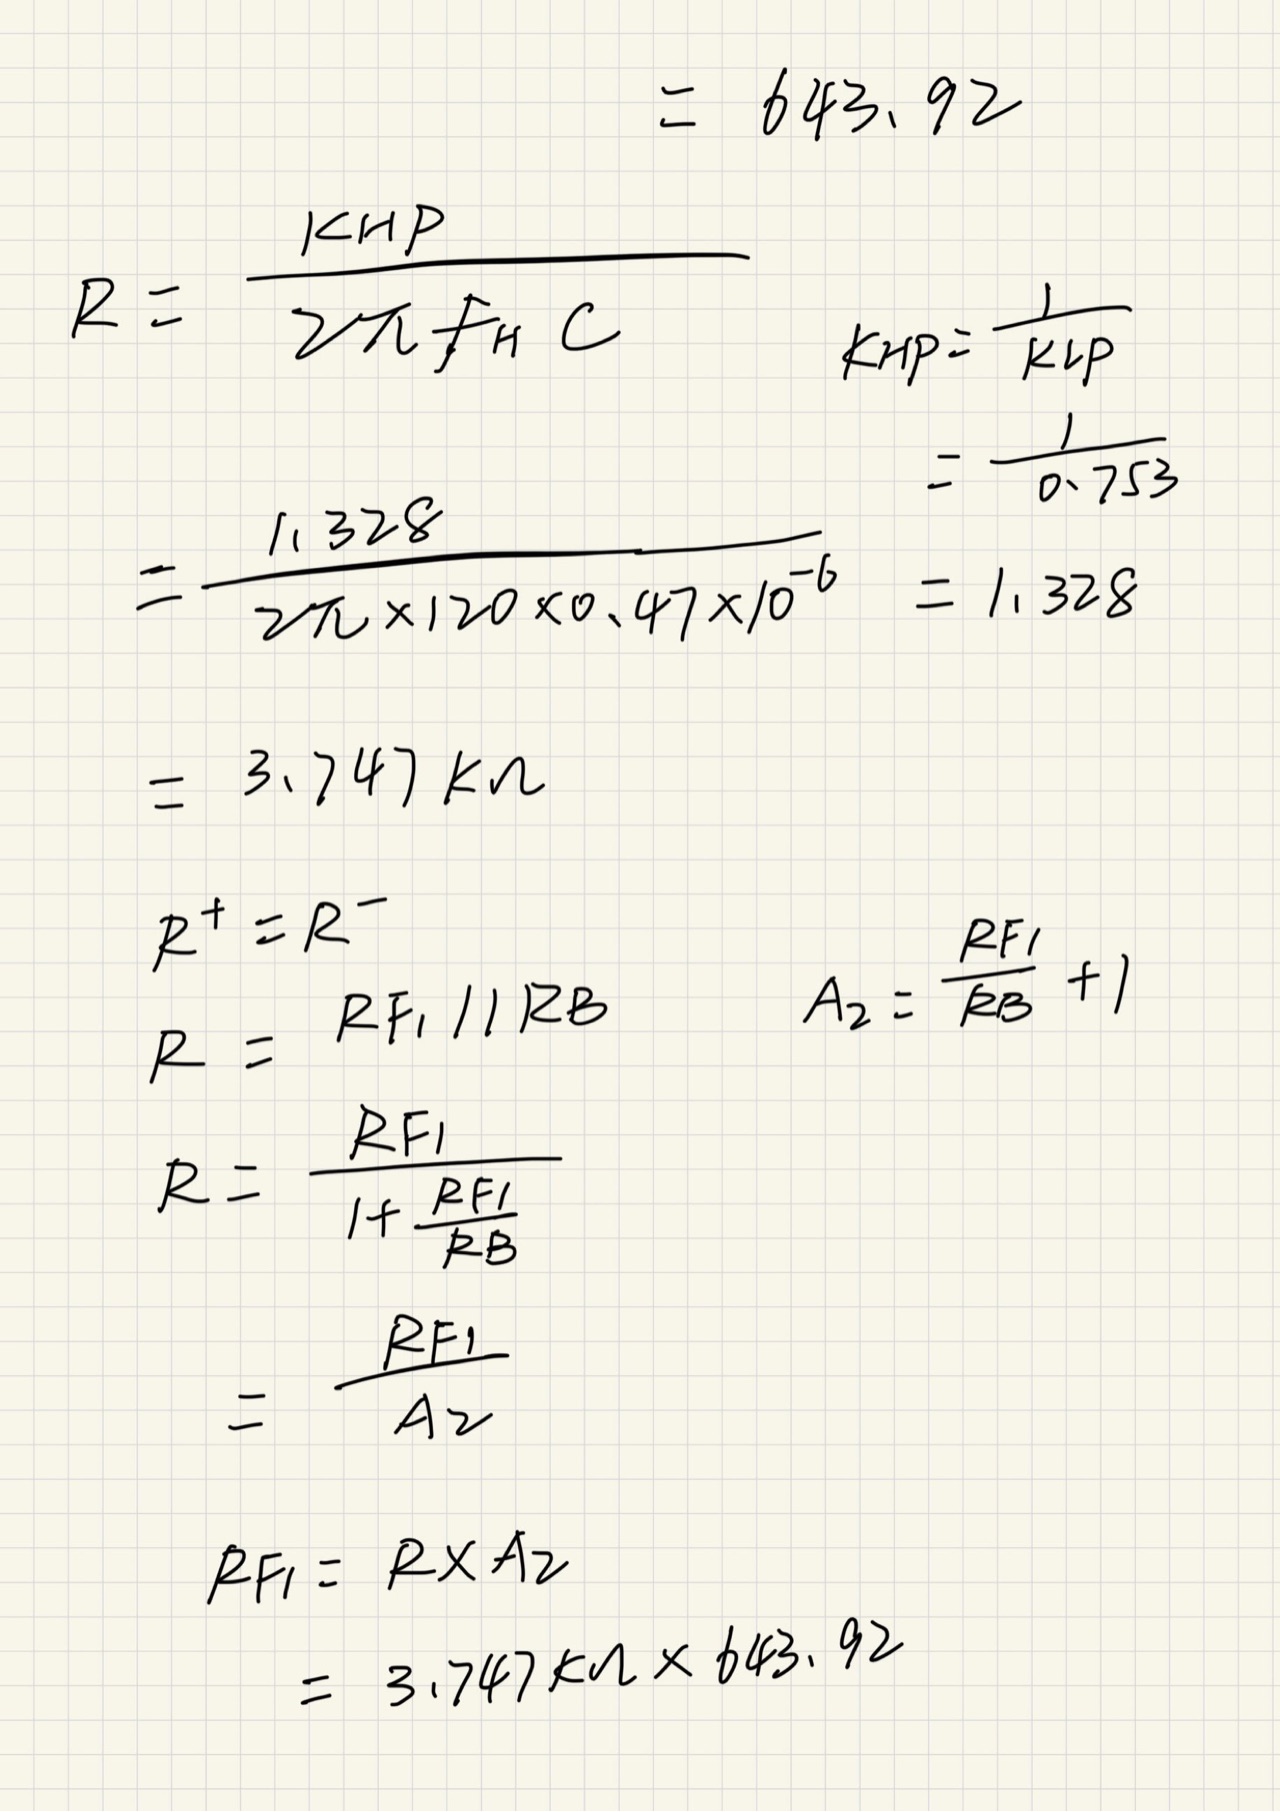 = 643.92
R = KHP / 2π fH C
KHP = 1 / KLP
= 1 / 0.753
= 1.328 / 2π × 120 × 0.47 × 10⁻⁶
= 1.328
= 3.747 KΩ
R⁺ = R⁻
R = RF1 // RB
A2 = RF1 / RB + 1
R = RF1 / 1 + RF1 / RB
= RF1 / A2
RF1 = R × A2
= 3.747 KΩ × 643.92